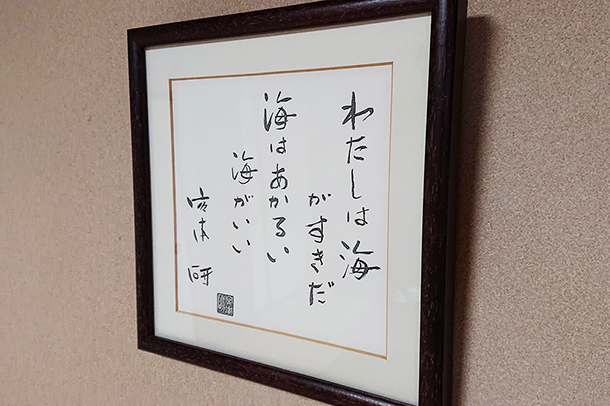 わたしは海
がすきだ
海はあかるい
海がいい
宮本 研